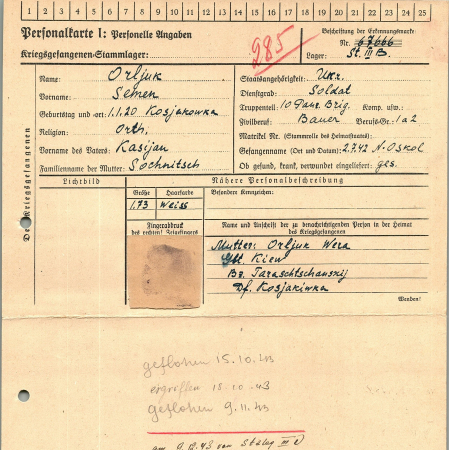 1 2 3 4 5 6 7 8 9 10 11 12 13 14 15 16 17 18 19 20 21 22 23 24 25
Personalkarte I: Personelle Angaben
Kriegsgefangenen-Stammlager:
285
Beschriftung der Erkennungsmarke
Nr. 67666
Lager: St. III B.
Des Kriegsgefangenen
Name: Orljuk
Vorname: Semen
Geburtstag und -ort: 1.1.20 Kosjakowka
Religion: Orth.
Vorname des Vaters: Kasijan
Familienname der Mutter: Sochnitsch
Staatsangehörigkeit: Ukr.
Dienstgrad: Soldat
Truppenteil: 10 Panz. Brig. Komp. usw.:
Zivilberuf: Bauer Berufs-Gr.: 1a2
Matrikel Nr. (Stammrolle des Heimatstaates):
Gefangennahme (Ort und Datum): 2.7.42 N. Oskol
Ob gesund, krank, verwundet eingeliefert: ges.
Lichtbild
Nähere Personalbeschreibung
Größe
Haarfarbe
Besondere Kennzeichen:
1.73
Weiss
Fingerabdruck
des rechten! Zeigefingers
Name und Anschrift der zu benachrichtigenden Person in der Heimat
des Kriegsgefangenen
Mutter: Orljuk Wera
Kiew
Bz. Taraschtschanskij
Df. Kosjakiwka
Wenden!
geflohen 15.10.43
ergriffen 18.10.43
geflohen 9.11.43
am 9.12.43 von Stalag III